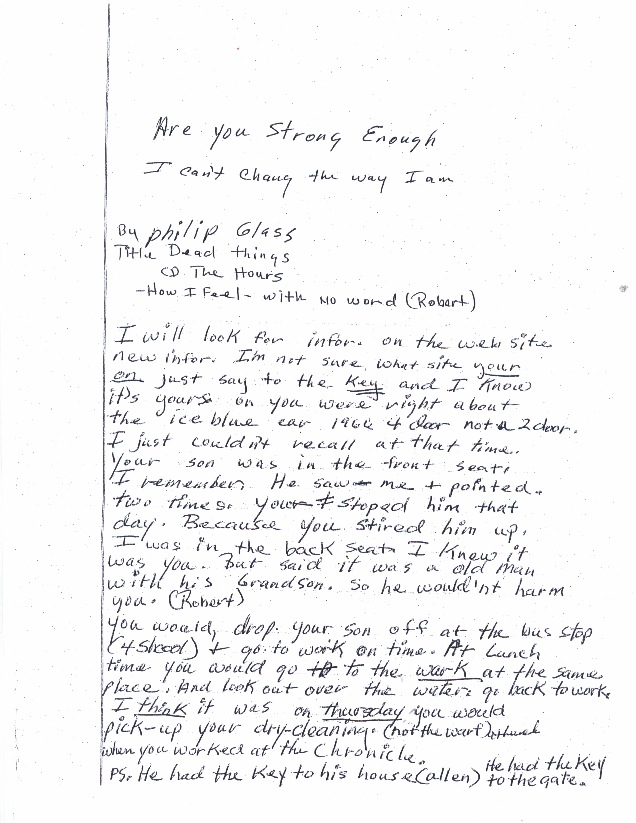 Are you Strong Enough
I can't Chang the way I am
By philip Glass
Title Dead things
CD The Hours
-How I Feel- with no word (Robert)
I will look for infor. on the web site
new infor. I'm not sure what site your
on just say to the Key and I Know
it's yours on you were right about
the ice blue car 1964 4 door not a 2 door.
I just couldn't recall at that time.
Your son was in the front seat,
I remember. He saw me + pointed.
two times. your stoped him that
day. Because you stired him up.
I was in the back seat I Knew it
was you. But said it was a old man
with his Grandson. So he would'nt harm
you. (Robert)
you would, drop your son off at the bus stop
(4 Shool) + go to work on time. At Lunch
time you would go to the at the same
place. And look out over the water. go back to work
I think it was on thursday you would
pick-up your dry-cleaning. (not the
when you worked at the Chronicle.
PS. He had the Key to his house (allen) He had the Key
to the gate.